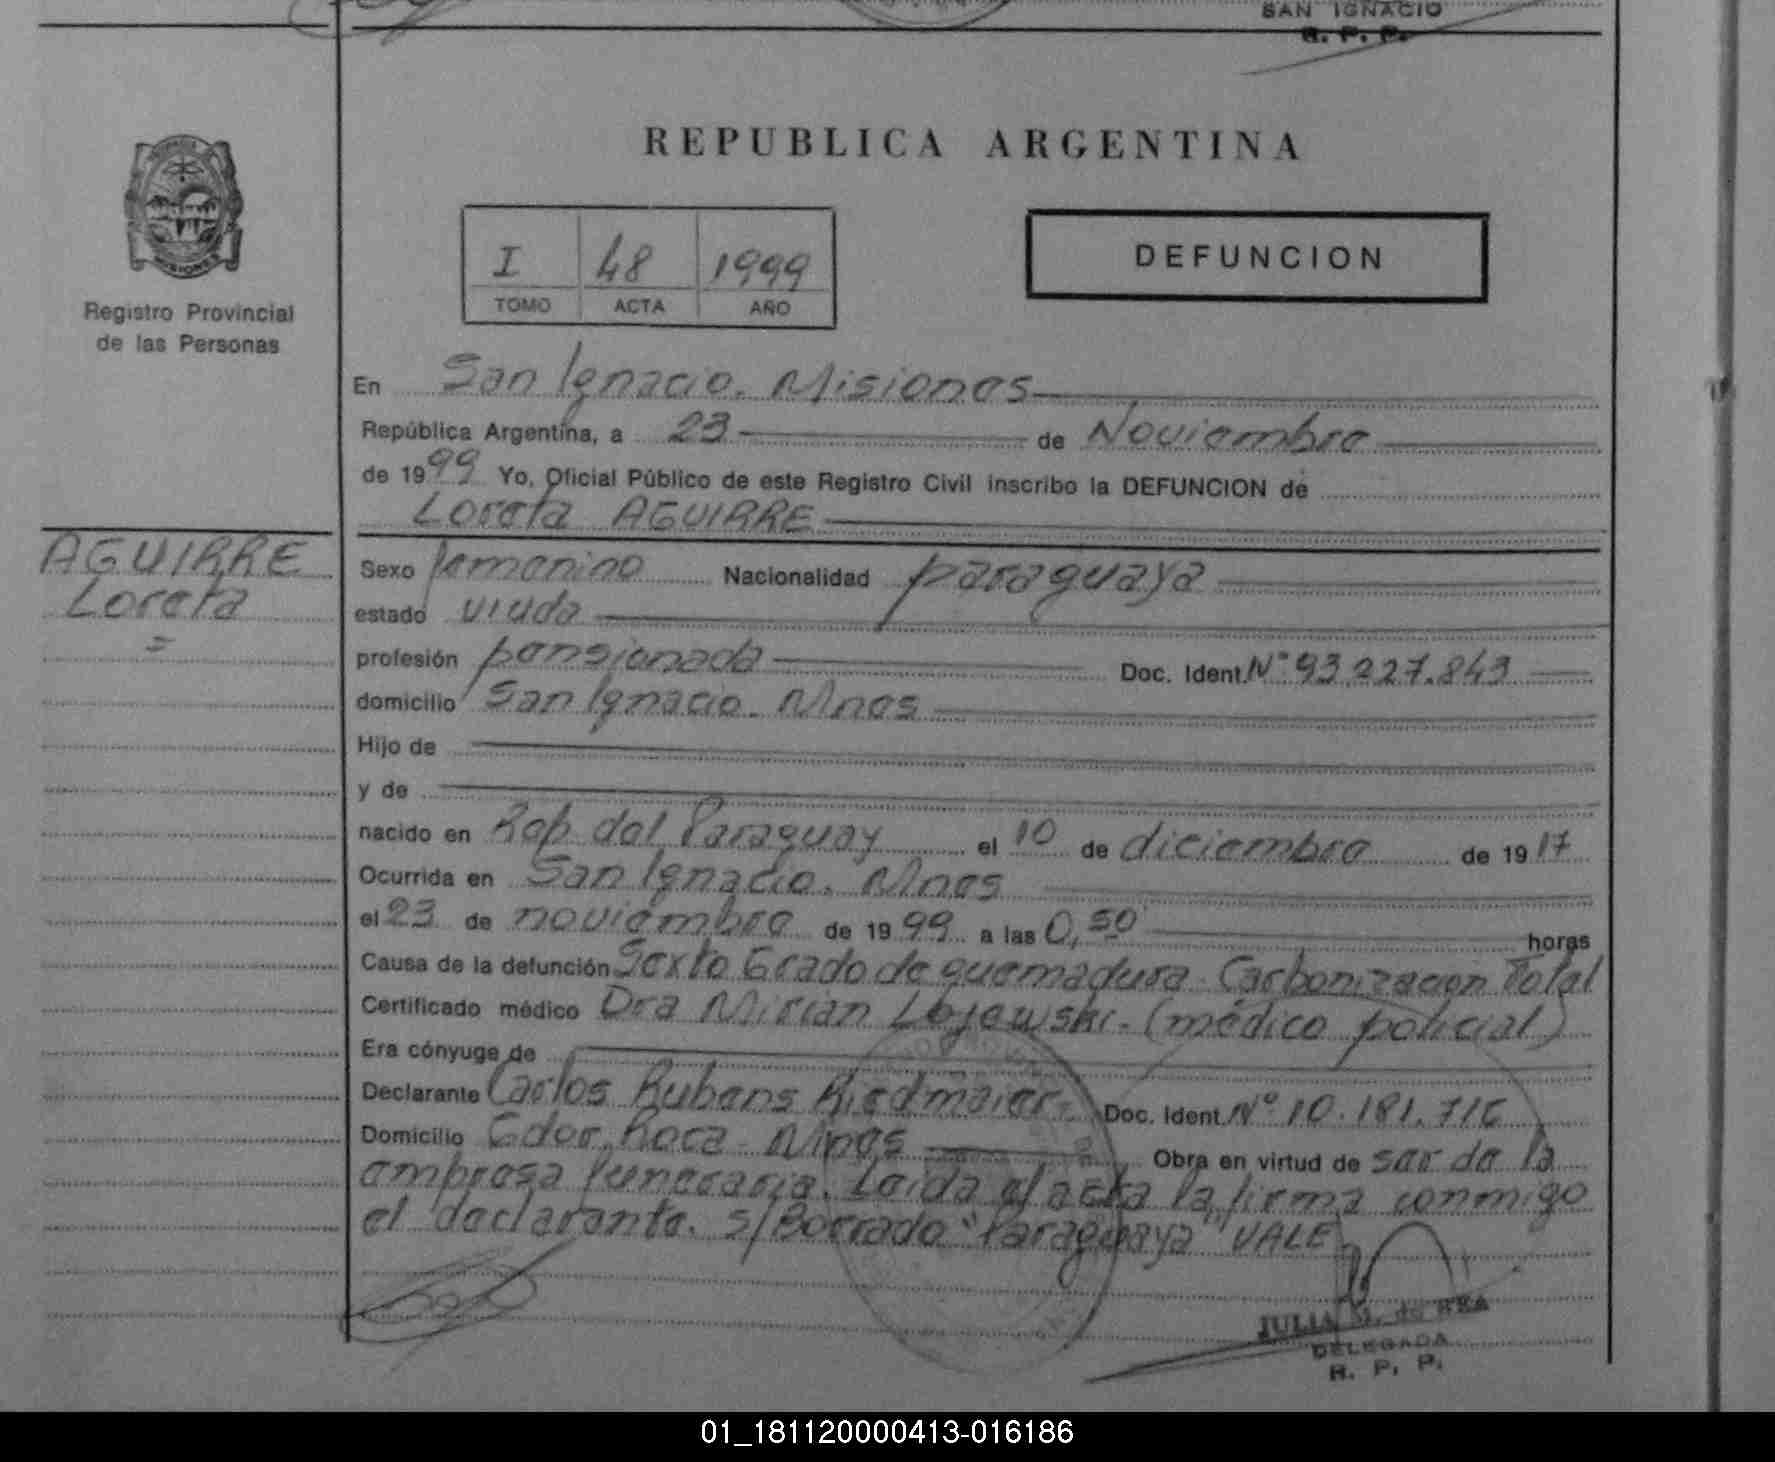 SAN IGNACIO
R. P. P.
REPUBLICA ARGENTINA
MISIONES
Registro Provincial
de las Personas
I 48 1999
TOMO ACTA AÑO
DEFUNCION
En San Ignacio. Misiones
República Argentina, a 23 de Noviembre
de 1999 Yo, Oficial Público de este Registro Civil inscribo la DEFUNCION de
Loreta AGUIRRE
AGUIRRE
Loreta
Sexo femenino Nacionalidad paraguaya
estado viuda
profesión pensionada Doc. Ident. Nº 93.227.843
domicilio San Ignacio. Mnes
Hijo de
y de
nacido en Rep. del Paraguay el 10 de diciembre de 1917
Ocurrida en San Ignacio. Mnes
el 23 de noviembre de 1999 a las 0,50 horas
Causa de la defunción Sexto Grado de quemadura. Carbonizacion Total
Certificado médico Dra Mirian Lojewski. (médico policial)
Era cónyuge de
Declarante Carlos Rubens Riedmaier. Doc. Ident. Nº 10.181.716
Domicilio Gdor. Roca. Mnes Obra en virtud de ser de la
empresa funeraria. Leida el acta la firma conmigo
el declarante. S/Borrado "Paraguaya" VALE
JULIA M. de REA
DELEGADA
R. P. P.
01_181120000413-016186